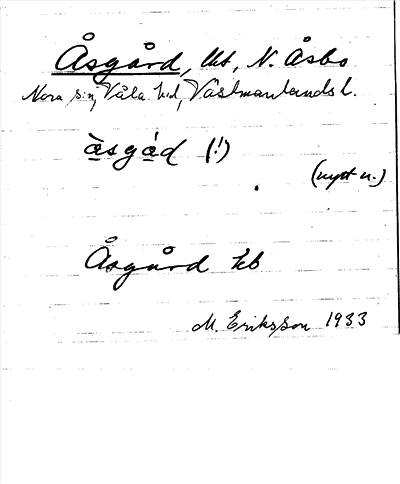 Åsgård, lht, N. Åsbo
Nora sn, Våla hd, Västmanlands l.
àsgád (!)
(nytt n.)
Åsgård Jeb
M. Eriksson 1933